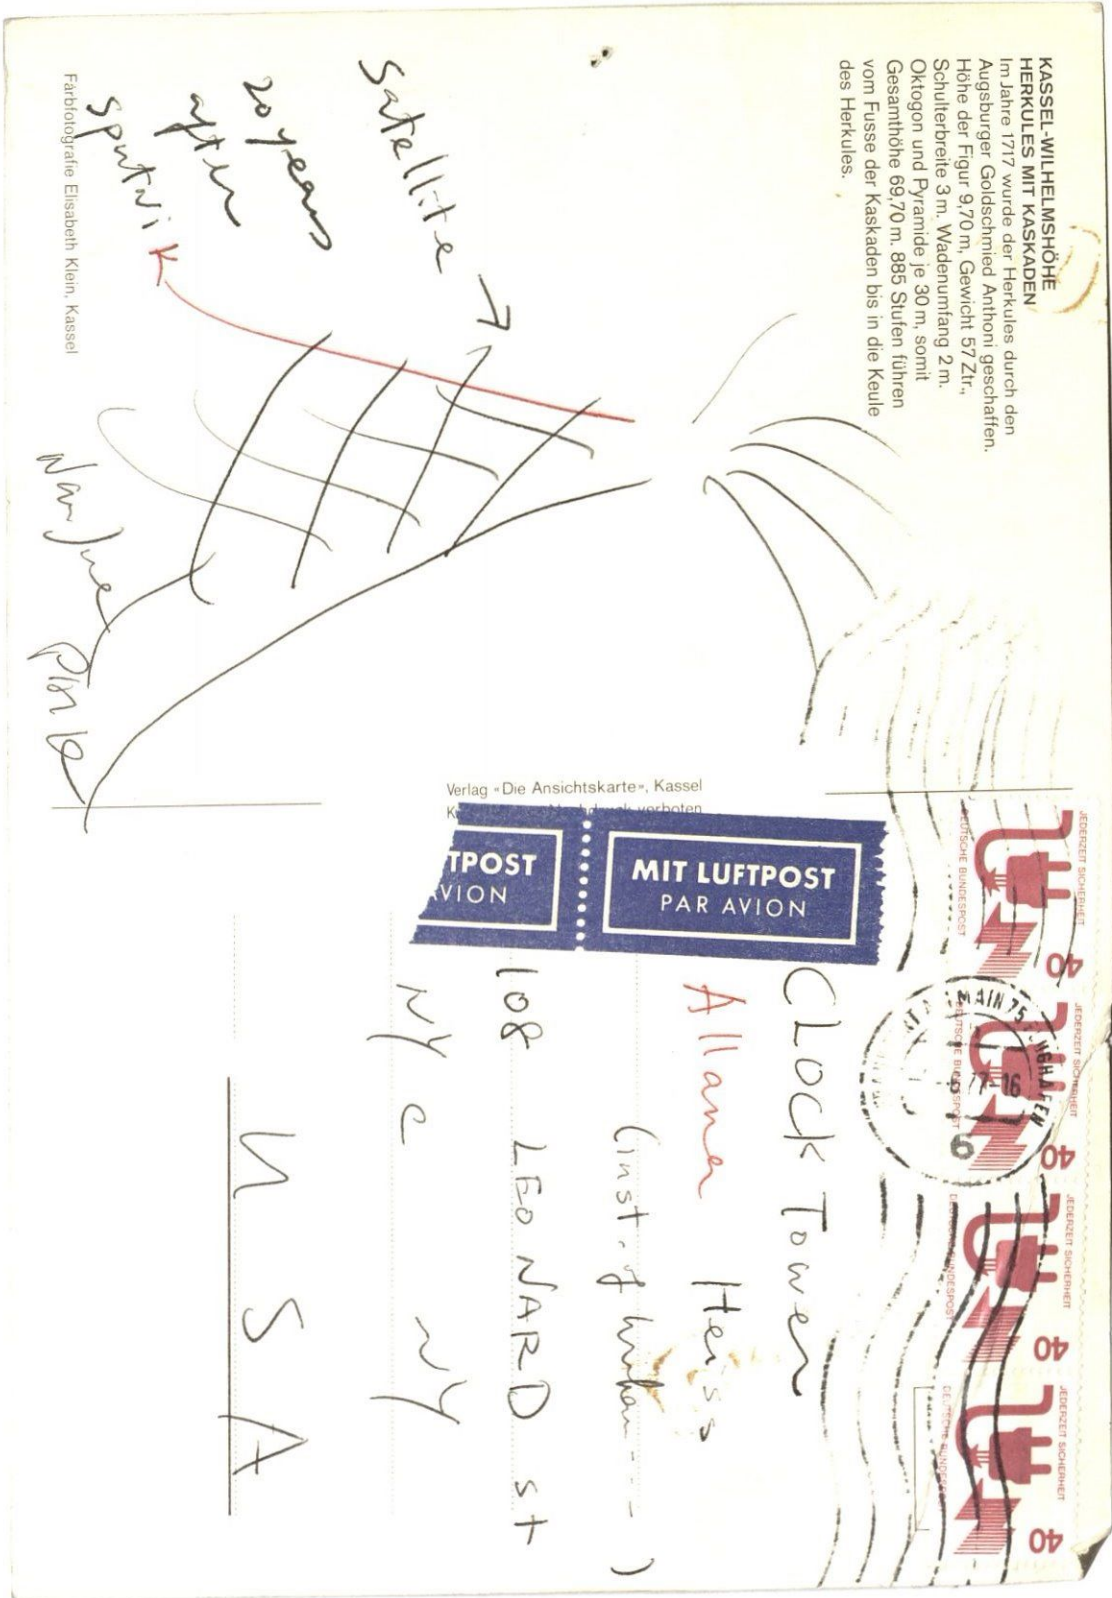 KASSEL-WILHELMSHÖHE
HERKULES MIT KASKADEN
Im Jahre 1717 wurde der Herkules durch den
Augsburger Goldschmied Anthoni geschaffen.
Höhe der Figur 9,70 m, Gewicht 57 Ztr.,
Schulterbreite 3 m. Wadenumfang 2 m.
Oktogon und Pyramide je 30 m, somit
Gesamthöhe 69,70 m. 885 Stufen führen
vom Fusse der Kaskaden bis in die Keule
des Herkules.
Satellite
20 years
after
Sputnik
Nam June
Paik
Farbfotografie Elisabeth Klein, Kassel
Verlag «Die Ansichtskarte», Kassel
Nachdruck verboten
TPOST
AVION
MIT LUFTPOST
PAR AVION
JEDERZEIT SICHERHEIT
DEUTSCHE BUNDESPOST
40
JEDERZEIT SICHERHEIT
DEUTSCHE BUNDESPOST
40
JEDERZEIT SICHERHEIT
DEUTSCHE BUNDESPOST
40
JEDERZEIT SICHERHEIT
DEUTSCHE BUNDESPOST
40
MAIN 75
77-16
6
CLOCK Tower
Allanna Heiss
(inst. of
108 LEONARD st
NYC NY
USA